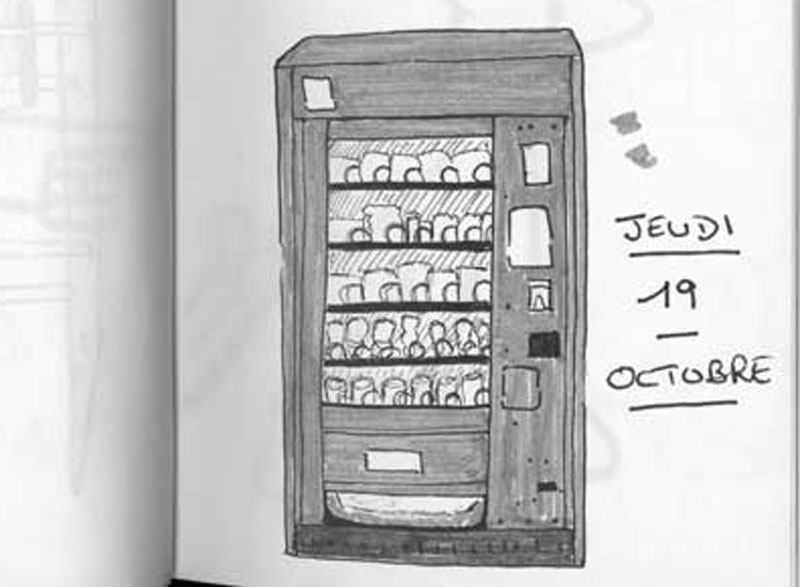 JEUDI
19
OCTOBRE